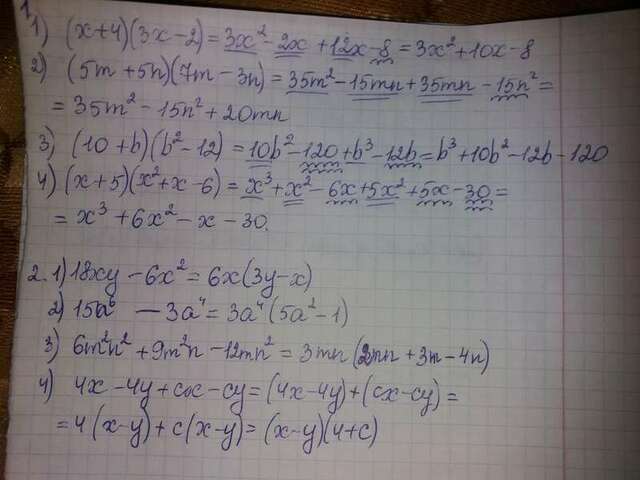 1.
1) (x+4)(3x-2) = 3x² - 2x + 12x - 8 = 3x² + 10x - 8
2) (5m + 5n)(7m - 3n) = 35m² - 15mn + 35mn - 15n² =
= 35m² - 15n² + 20mn
3) (10 + b)(b² - 12) = 10b² - 120 + b³ - 12b = b³ + 10b² - 12b - 120
4) (x+5)(x² + x - 6) = x³ + x² - 6x + 5x² + 5x - 30 =
= x³ + 6x² - x - 30.
2. 1) 18xy - 6x² = 6x(3y - x)
2) 15a⁶ - 3a⁴ = 3a⁴(5a² - 1)
3) 6m²n² + 9m²n - 12mn² = 3mn(2mn + 3m - 4n)
4) 4x - 4y + cx - cy = (4x - 4y) + (cx - cy) =
= 4(x - y) + c(x - y) = (x - y)(4 + c)